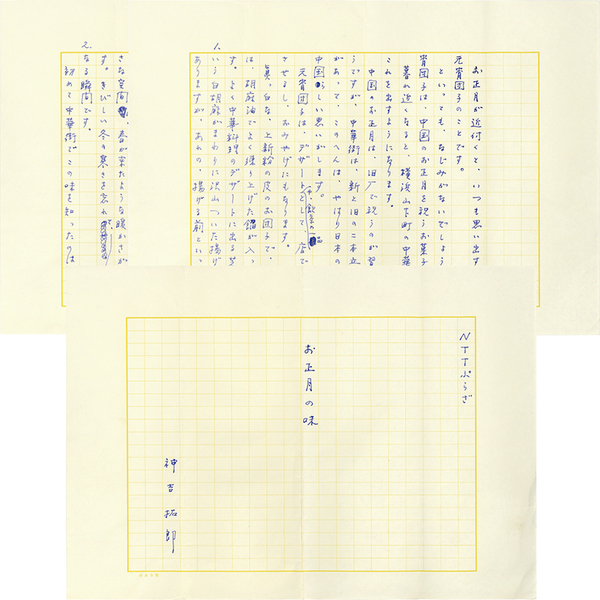 NTTぷらざ
お正月の味
神吉拓郎
1.
お正月が近付くと、いつも思い出す
元宵団子のことです。
といっても、なじみがないでしょう
宵団子は、中国のお正月を祝うお菓子
暮れ近くなると、横浜山下町の中華
これを出すようになります。
中国のお正月は、旧で祝うのが習
うですが、中華街は、新と旧の二本立
があって、このへんは、やはり日本の
中国らしい思いがします。
元宵団子は、デザートとして、店で
や、飲茶の一品
させるし、おみやげにもなります。
真ッ白な、上新粉の皮のお団子で、
は、胡麻油でよく煉り上げた餡が入っ
す。よく中華料理のデザートに出る
いう白胡麻がまわりに沢山ついた揚げ
ありますが、あれの、揚げる前といっ
2.
さな空間、春が来たような暖かさが
す。きびしい冬の寒さを忘れ
なる瞬間です。
初めて中華街でこの味を知ったのは